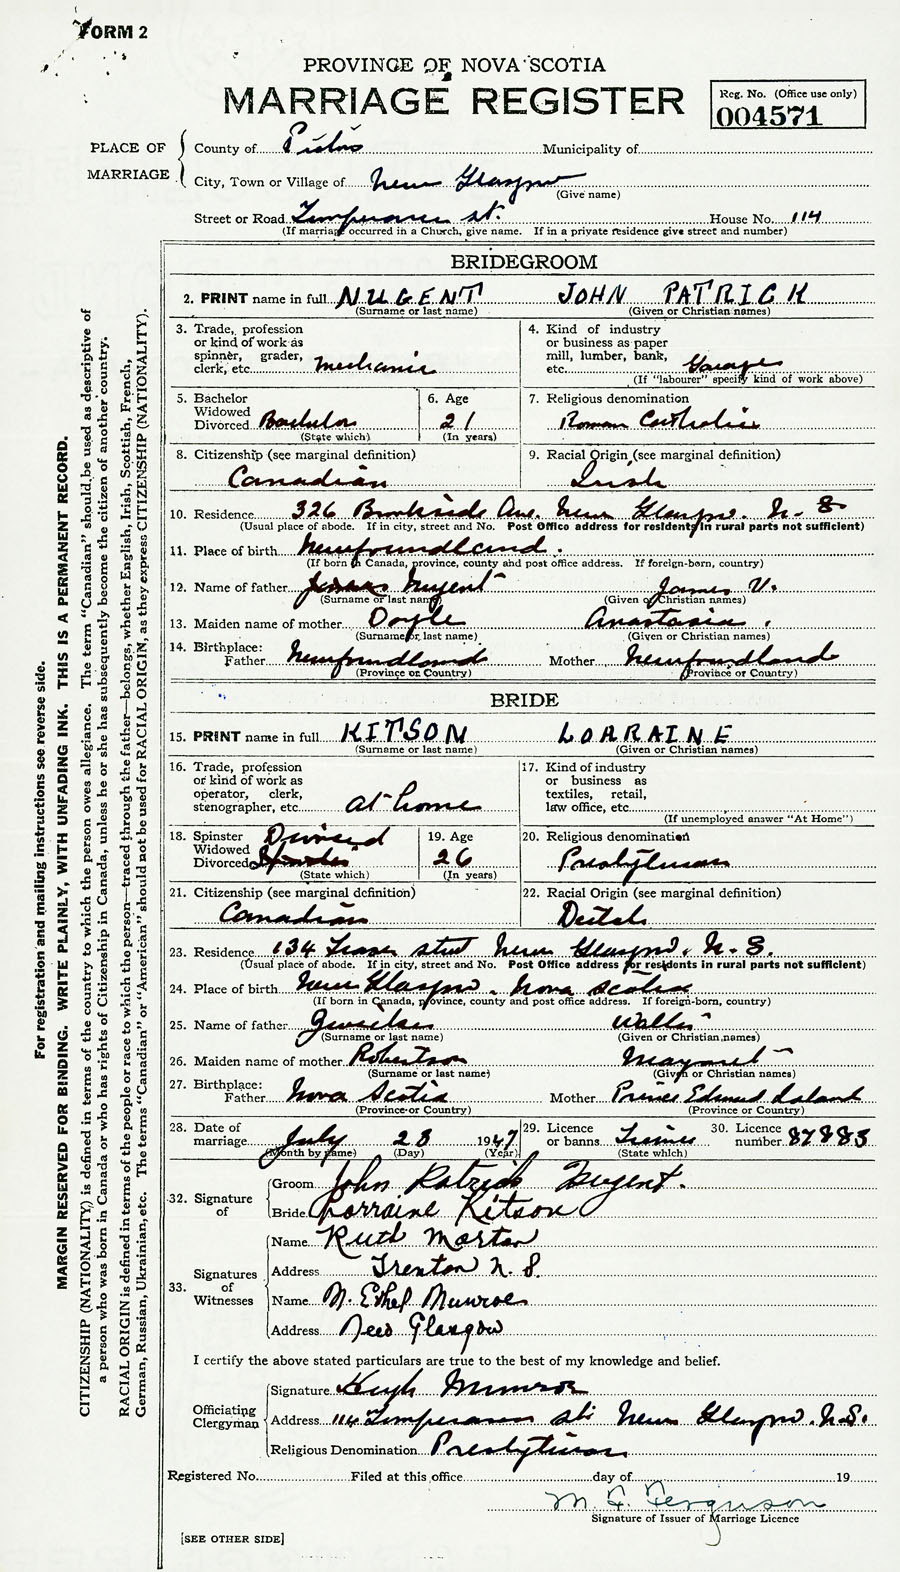 FORM 2
PROVINCE OF NOVA SCOTIA
MARRIAGE REGISTER
Reg. No. (Office use only)
004571
PLACE OF MARRIAGE
County of Pictou Municipality of
City, Town or Village of New Glasgow
(Give name)
Street or Road Temperance St. House No. 114
(If marriage occurred in a Church, give name. If in a private residence give street and number)
BRIDEGROOM
2. PRINT name in full NUGENT JOHN PATRICK
(Surname or last name) (Given or Christian names)
3. Trade, profession or kind of work as spinner, grader, clerk, etc. Mechanic
4. Kind of industry or business as paper mill, lumber, bank, etc. Garage
(If "labourer" specify kind of work above)
5. Bachelor Widowed Divorced Bachelor
(State which)
6. Age 21
(In years)
7. Religious denomination
Roman Catholic
8. Citizenship (see marginal definition)
Canadian
9. Racial Origin (see marginal definition)
Irish
10. Residence 326 Brookside Ave. New Glasgow. N-S
(Usual place of abode. If in city, street and No. Post Office address for residents in rural parts not sufficient)
11. Place of birth Newfoundland.
(If born in Canada, province, county and post office address. If foreign-born, country)
12. Name of father James Nugent James V.
(Surname or last name) (Given or Christian names)
13. Maiden name of mother Doyle Anastasia.
(Surname or last name) (Given or Christian names)
14. Birthplace: Father Newfoundland Mother Newfoundland
(Province or Country) (Province or Country)
BRIDE
15. PRINT name in full KITSON LORRAINE
(Surname or last name) (Given or Christian names)
16. Trade, profession or kind of work as operator, clerk, stenographer, etc. at home
17. Kind of industry or business as textiles, retail, law office, etc.
(If unemployed answer "At Home")
18. Spinster Widowed Divorced Divorced Spinster
(State which)
19. Age 26
(In years)
20. Religious denomination
Presbyterian
21. Citizenship (see marginal definition)
Canadian
22. Racial Origin (see marginal definition)
Dutch
23. Residence 134 street New Glasgow. N.S.
(Usual place of abode. If in city, street and No. Post Office address for residents in rural parts not sufficient)
24. Place of birth New Glasgow. Nova Scotia
(If born in Canada, province, county and post office address. If foreign-born, country)
25. Name of father
(Surname or last name) (Given or Christian names)
26. Maiden name of mother Robertson Margaret
(Surname or last name) (Given or Christian names)
27. Birthplace: Father Nova Scotia Mother Prince Edward Island
(Province or Country) (Province or Country)
28. Date of marriage July 28 1947
(Month by name) (Day) (Year)
29. Licence or banns License
(State which)
30. Licence number 87883
32. Signature of
Groom John Patrick Nugent.
Bride Lorraine Kitson
33. Signatures of Witnesses
Name Ruth Morton
Address Trenton N.S.
Name M. Ethel Munroe
Address New Glasgow
I certify the above stated particulars are true to the best of my knowledge and belief.
Officiating Clergyman
Signature Hugh Munroe
Address 114 Temperance St. New Glasgow. N.S.
Religious Denomination Presbyterian
Registered No. Filed at this office day of 19
M. F. Ferguson
Signature of Issuer of Marriage Licence
[SEE OTHER SIDE]
For registration and mailing instructions see reverse side.
MARGIN RESERVED FOR BINDING. WRITE PLAINLY, WITH UNFADING INK. THIS IS A PERMANENT RECORD.
CITIZENSHIP (NATIONALITY) is defined in terms of the country to which the person owes allegiance. The term "Canadian" should be used as descriptive of
a person who was born in Canada or who has rights of Citizenship in Canada, unless he or she has subsequently become the citizen of another country.
RACIAL ORIGIN is defined in terms of the people or race to which the person—traced through the father—belongs, whether English, Irish, Scottish, French,
German, Russian, Ukrainian, etc. The terms "Canadian" or "American" should not be used for RACIAL ORIGIN, as they express CITIZENSHIP (NATIONALITY).